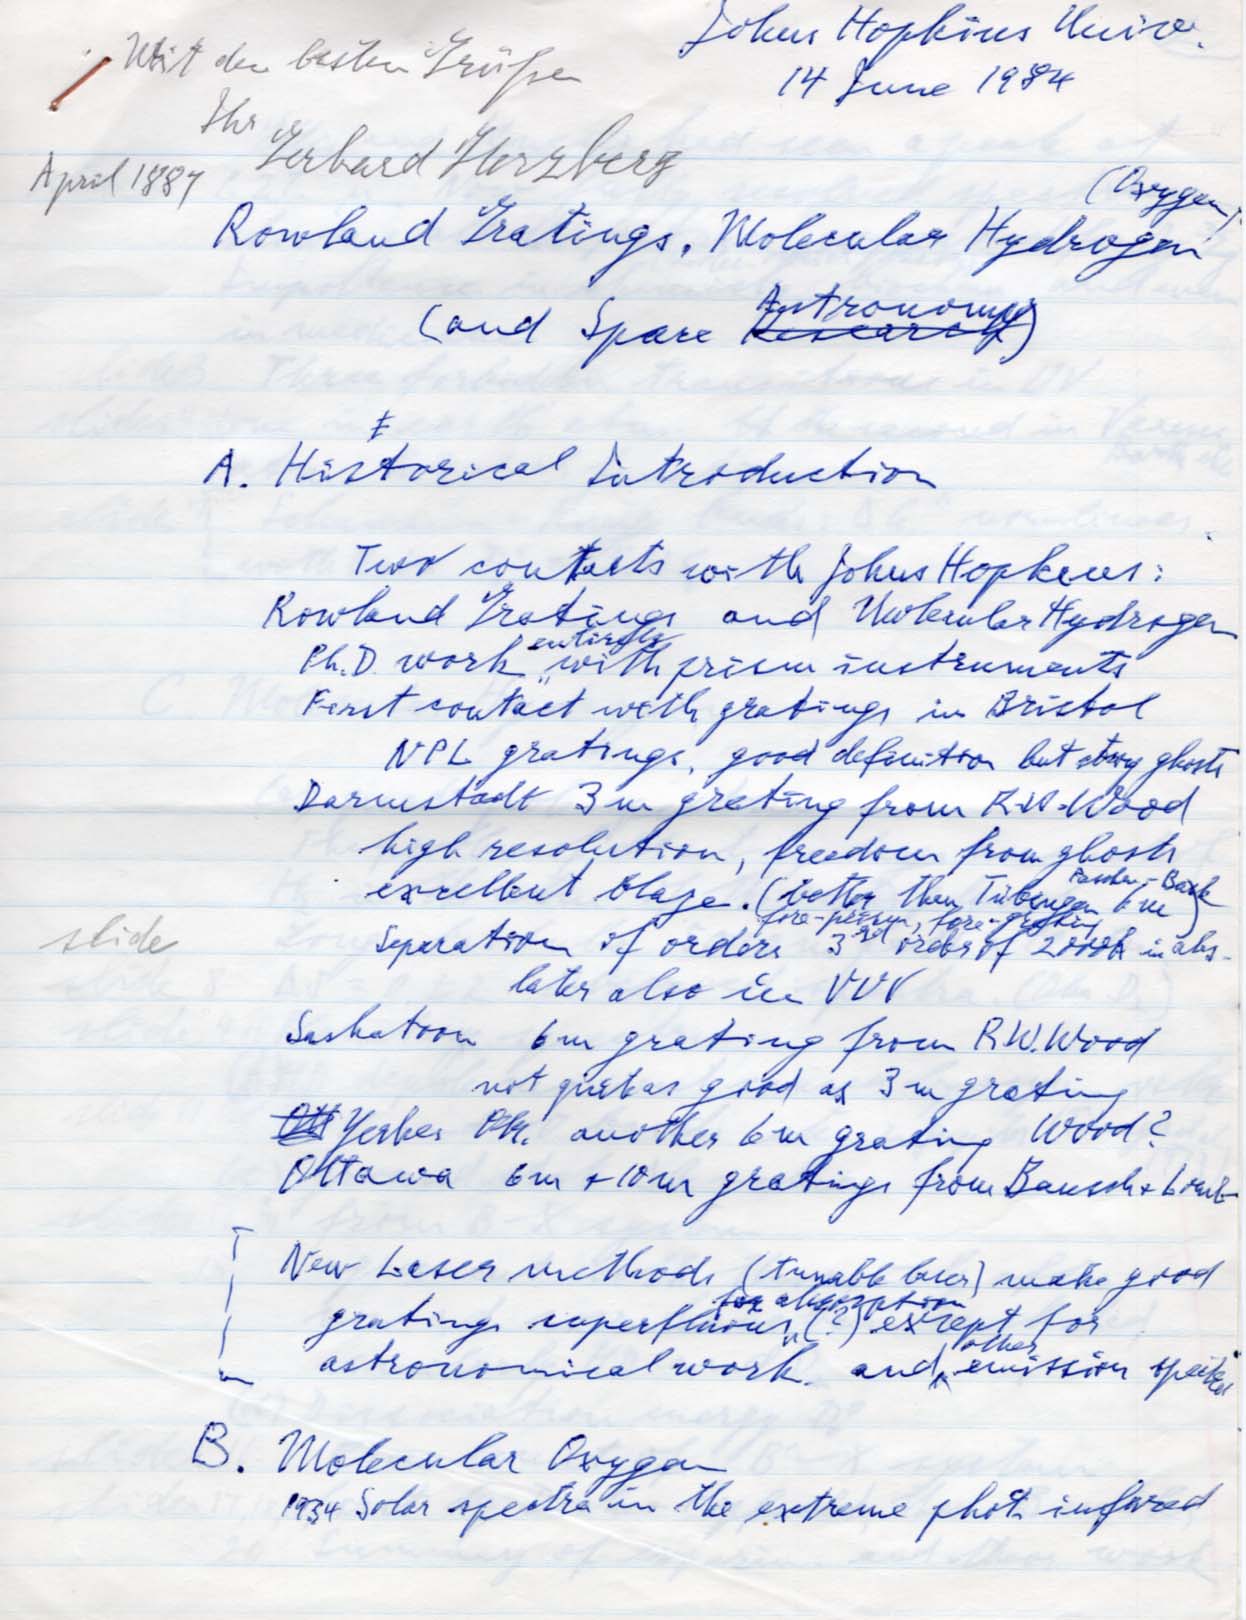 Johns Hopkins Univ.
14 June 1984
Mit den besten Grüßen
Ihr
Gerhard Herzberg
April 1887
(Oxygen)
Rowland Gratings, Molecular Hydrogen
(and Space Research Astronomy)
A. Historical Introduction
Two contacts with Johns Hopkins:
Rowland Gratings and Molecular Hydrogen
Ph.D. work entirely with prism instruments
First contact with gratings in Bristol
NPL gratings, good definition but strong ghosts
Darmstadt 3 m grating from R.W. Wood
high resolution, freedom from ghosts
excellent blaze. (better than Tübingen Paschen-Back 6 m)
fore-prism, fore-grating
slide
Separation of orders 3rd order of 2000Å in abs.
later also in VUV
Saskatoon 6 m grating from R.W. Wood
not quite as good as 3 m grating
Ott Yerkes Ok. another 6 m grating Wood?
Ottawa 6 m + 10 m gratings from Bausch + Lomb
New Laser methods (tunable laser) make good
gratings superfluous for absorption (?) except for
astronomical work and other emission spectra
B. Molecular Oxygen
1934 Solar spectra in the extreme phot. infrared